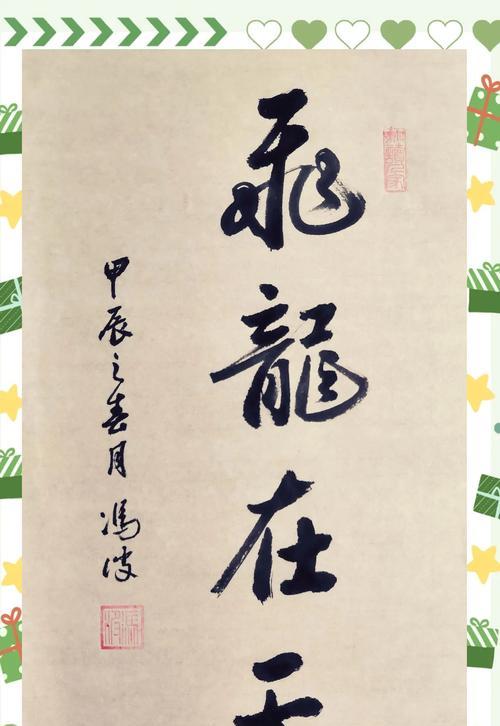 飛龍在天
甲辰之春月 馮